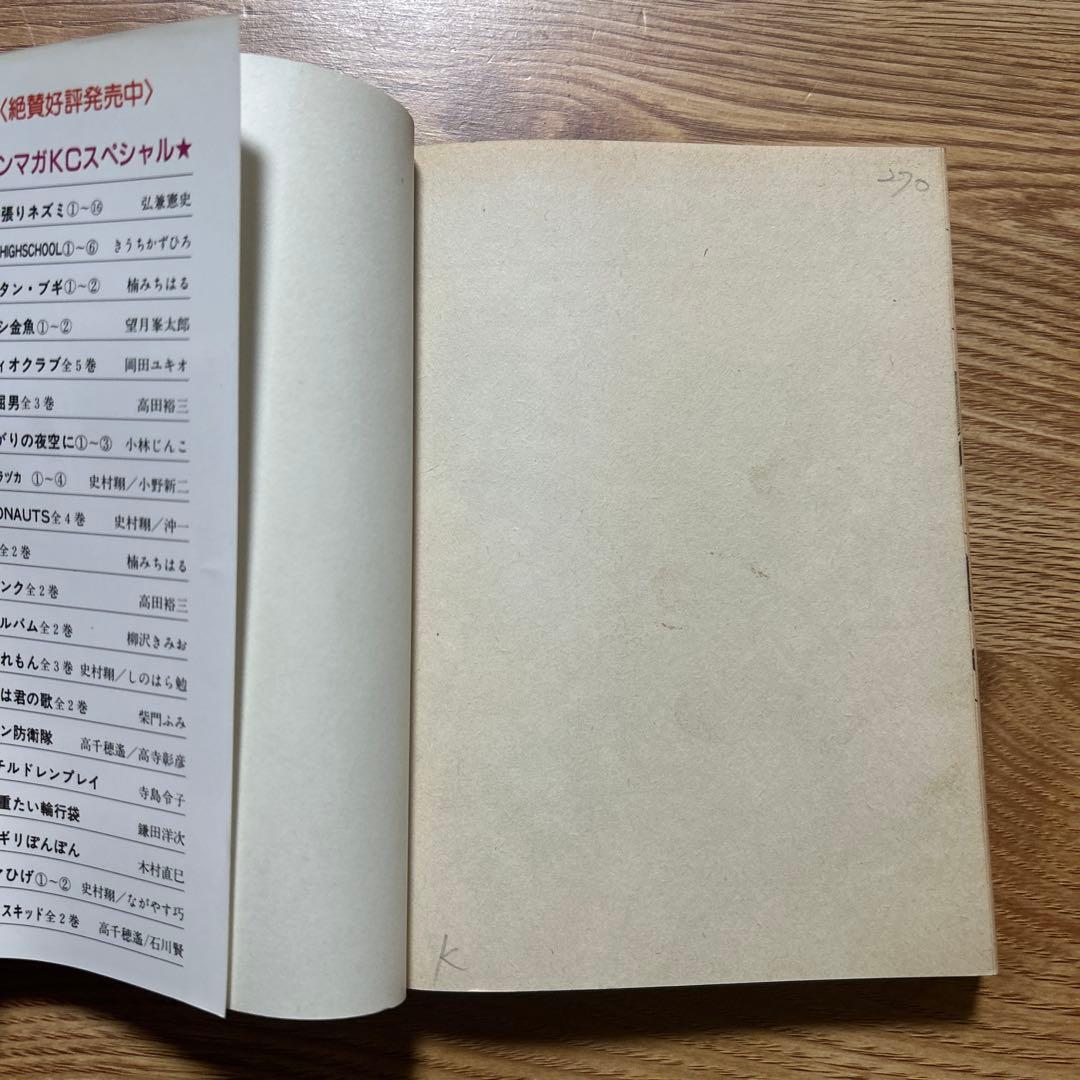 〈絶賛好評発売中〉
ンマガKCスペシャル★
張りネズミ①~⑯ 弘兼憲史
HIGHSCHOOL①~⑥ きうちかずひろ
タン・ブギ①~② 楠みちはる
シ金魚①~② 望月峯太郎
ィオクラブ全5巻 岡田ユキオ
屈男全3巻 高田裕三
がりの夜空に①~③ 小林じんこ
ラヅカ ①~④ 史村翔/小野新二
ONAUTS全4巻 史村翔/沖一
全2巻 楠みちはる
ンク全2巻 高田裕三
ルバム全2巻 柳沢きみお
れもん全3巻 史村翔/しのはら勉
は君の歌全2巻 柴門ふみ
ン防衛隊 高千穂遙/高寺彰彦
チルドレンプレイ 寺島令子
重たい輪行袋 鎌田洋次
ギリぽんぽん 木村直巳
マひげ①~② 史村翔/ながやす巧
スキッド全2巻 高千穂遙/石川賢
270
K